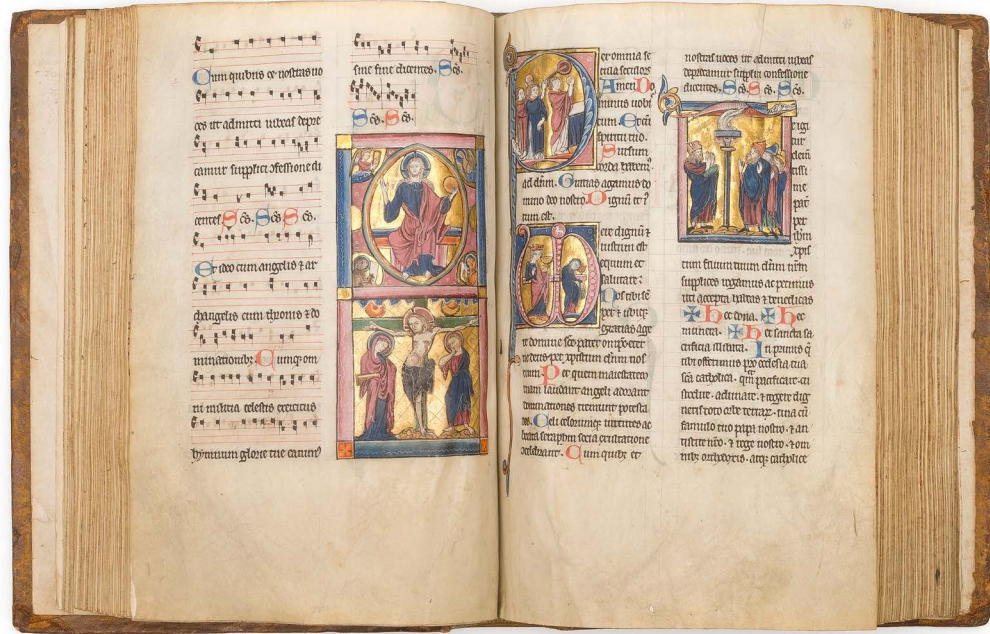 Cum quibus et nostras uo
ces ut admitti iubeas depre
camur supplici ɔfessione di
centes Scs. Scs Scs.
Et ideo cum angelis et ar
changelis cum thronis et do
minationibꝫ Cumqꝫ om
ni militia celestis exercitus
hymnum glorie tue canimꝰ
sine fine dicentes. Scs.
Scs. Scs.
Per omnia se
cula seculoꝝ
Amen. Do
minus uobi
cum. Et cū
spiritu tuo.
Sursum
corda
ad dn̄m. Gratias agamus do
mino deo nostro. Dignū et
ium est.
Uere dignū ⁊
iustum est
equum et
salutare.
Nos tibi sē
per ⁊ ubiqꝫ
gratias age
re domine sc̄e pater
eterne deus per xpistum dn̄m nos
trum. Per quem maiestatem
tuam laudant angeli adorant
dominationes tremunt potesta
tes. Celi celorumqꝫ uirtutes ac
beata seraphim socia exultatione
concelebrant. Cum quibꝫ et
nostras uoces ut admitti iubeas
deprecamur supplici confessione
dicentes. Scs. Scs. Scs.
Te igi
tur
clem
tissi
me
pat̄
per
ihm̄
xpis
tum filium tuum dn̄m nr̄m
supplices rogamus ac petimus
uti accepta habeas ⁊ benedicas
✠ Hec dona. ✠ Hec
munera. ✠ Hec sancta sa
crificia illibata. In primis q̄
tibi offerimus pro ecclesia tua
sc̄a catholica. qm̄ pacificare cu
stodire. adunare. ⁊ regere dig
neris toto orbe terraꝝ. una cū
famulo tuo papa nostro. ⁊ an
tistite nr̄o. ⁊ rege nostro. ⁊ om
nibꝫ orthodoxis. atqꝫ catholice